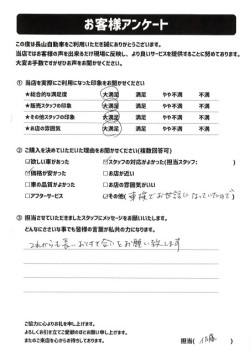 お客様アンケート
この度は長山自動車をご利用いただき誠にありがとうございます。
当店ではお客様の声を出来るだけ現場に反映し、より良いサービスを提供することに努めております。
大変お手数ですがぜひお声をお聞かせください。
① 当店を実際にご利用になった印象をお聞かせください
★総合的な満足度 大満足 満足 やや不満 不満
★販売スタッフの印象 大満足 満足 やや不満 不満
★その他スタッフの印象 大満足 満足 やや不満 不満
★お店の雰囲気 大満足 満足 やや不満 不満
② ご購入を決めていただいた理由をお聞かせください(複数回答可)
☑欲しい車があった ☑スタッフの対応がよかった(担当スタッフ: )
☑価格が安かった □お店が近い
□車の品質がよかった □お店の雰囲気がいい
□アフターサービス ☑その他(車検でお世話になっていたので)
③ 担当させていただきましたスタッフにメッセージをお願いいたします。
どんなにささいな事でも皆様の言葉が私共の力になります。
これからも長いおつき合いをお願い致します
ご協力に心よりお礼を申し上げます。
よろしくお引き立てご愛顧のほどお願い申し上げます。
またのご来店を心からお待ちしております。 担当( 佐藤 )